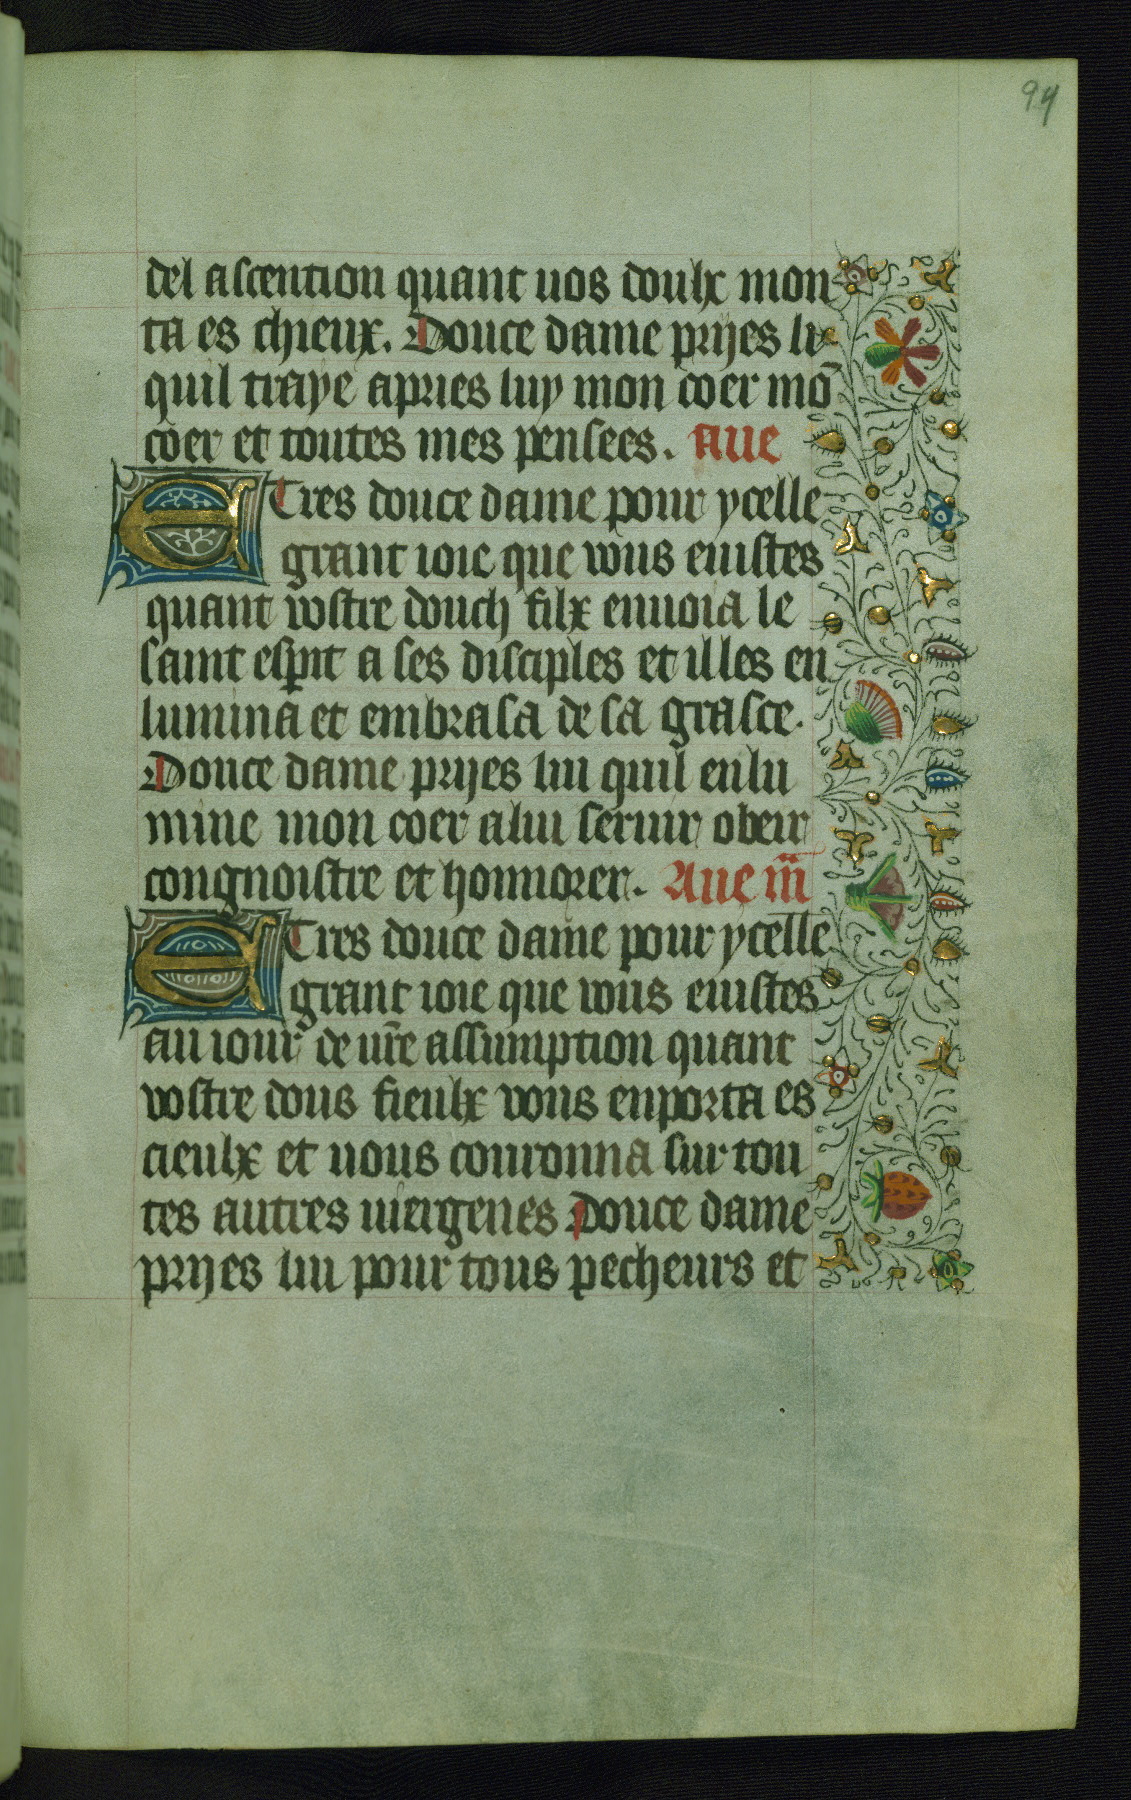 94
del ascention quant uos doulx mon
ta es chieux. Douce dame prijes li
quil traye apries luy mon coer mō
coer et toutes mes pensees. Aue
E Tres douce dame pour ycelle
grant ioie que vous euistes
quant vostre douch filx enuoia le
saint esp̄rit a ses disciples et illes en
lumina et embrasa de sa grasce.
Douce dame prijes lui quil enlu
mine mon coer a lui seruir obeir
congnoistre et honnorer. Aue m̄
E Tres douce dame pour ycelle
grant ioie que vous euistes
au iour de ur̄e assumption quant
vostre dous fieulx vous enporta es
cieulx et uous couronna sur tou
tes autres uiergenes Douce dame
prijes lui pour tous pecheurs et